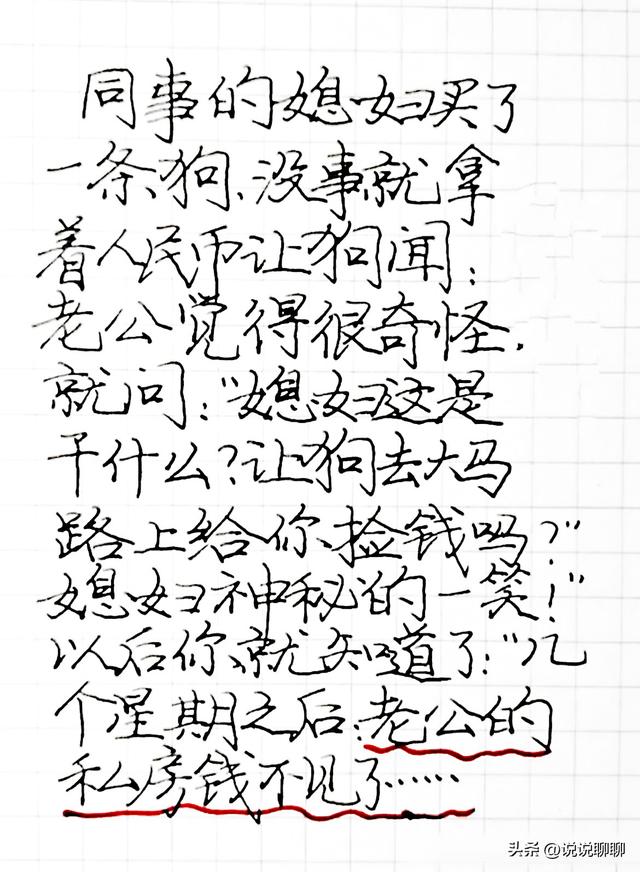 同事的媳妇买了
一条狗、没事就拿
着人民币让狗闻；
老公觉得很奇怪，
就问："媳妇这是
干什么?让狗去大马
路上给你捡钱吗?"
媳妇神秘的一笑!"
以后你就知道了："几
个星期之后，老公的
私房钱不见了……
头条 @说说聊聊